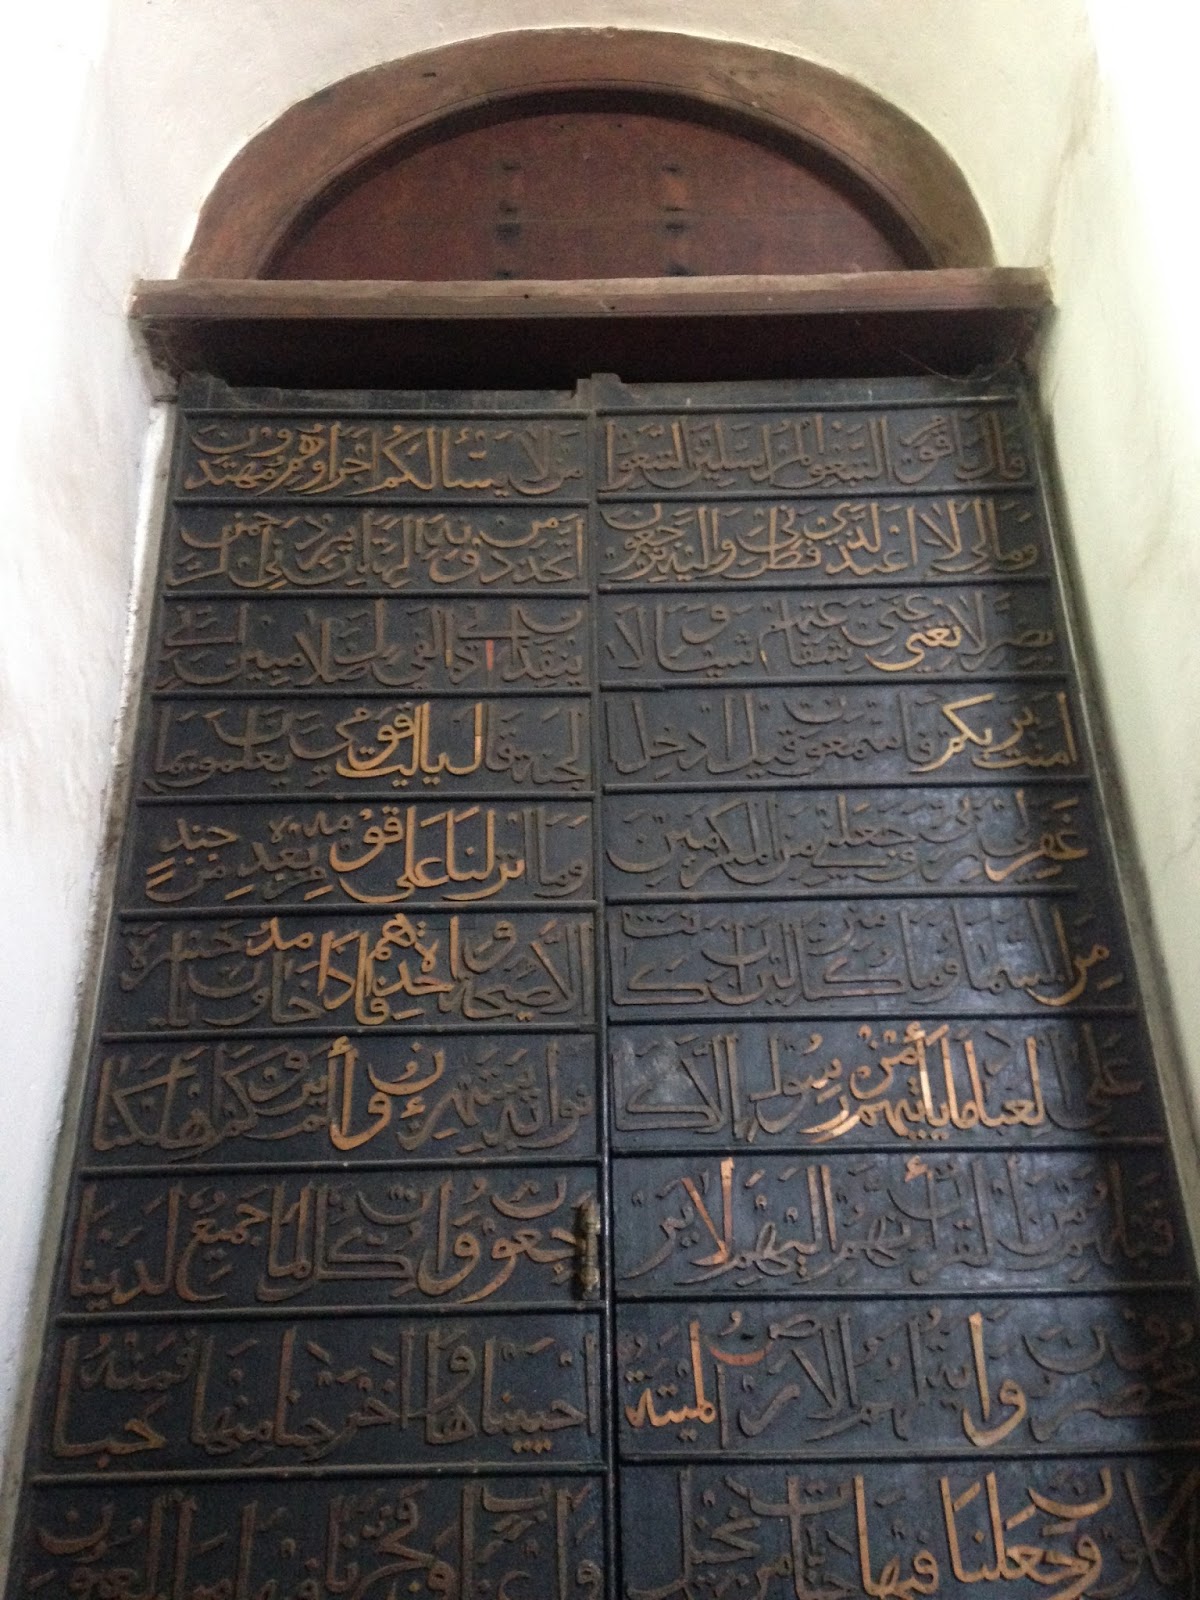 قال يقوم اتبعوا المرسلين اتبعوا من لا يسألكم اجرا وهم مهتدون
ومالي لا اعبد الذي فطرني واليه ترجعون أتخذ من دونه الهتا ان يردن الرحمن
بضر لا تغني عني شفاعتهم شيئا ولا ينقذون اني اذا لفي ضلال مبين اني
امنت بربكم فاسمعون قيل ادخل الجنة قال ياليت قومي يعلمون بما
غفرلي ربي وجعلني من المكرمين وما انزلنا على قومه من بعده من جند
من السما وما كنا منزلين ان كانت الا صيحة واحدة فاذا هم خامدون يا حسرة
على العباد ما يأتيهم من رسول الا كا نوا به يستهزئون وألم يروا كم اهلكنا
قبلهم من القرون أنهم اليهم لا ير جعون وان كل لما جميع لدينا
محضرون واية لهم الارض الميتة احييناها واخرجنا منها حبا فمنه
كلون وجعلنا فيها جنات من نخيل واعناب وفجرنا فيها من العيون